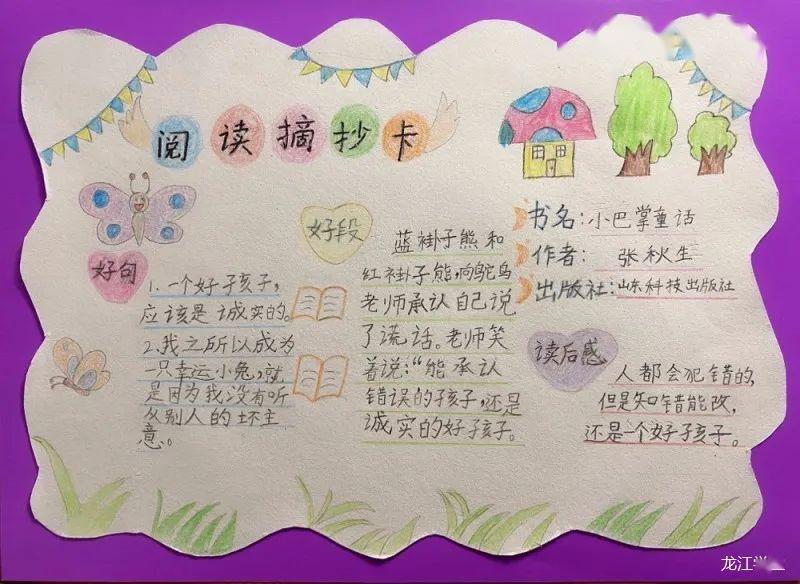 阅读摘抄卡
好句
1.一个好孩子,
应该是诚实的。
2.我之所以成为
一只幸运小兔,就
是因为我没有听
从别人的坏主
意。
好段
蓝褂子熊和
红褂子熊,向鸵鸟
老师承认自己说
了谎话。老师笑
着说:“能承认
错误的孩子,还是
诚实的好孩子。
书名:小巴掌童话
作者: 张秋生
出版社:山东科技出版社
读后感
人都会犯错的,
但是知错能改,
还是一个好孩子。
龙江学